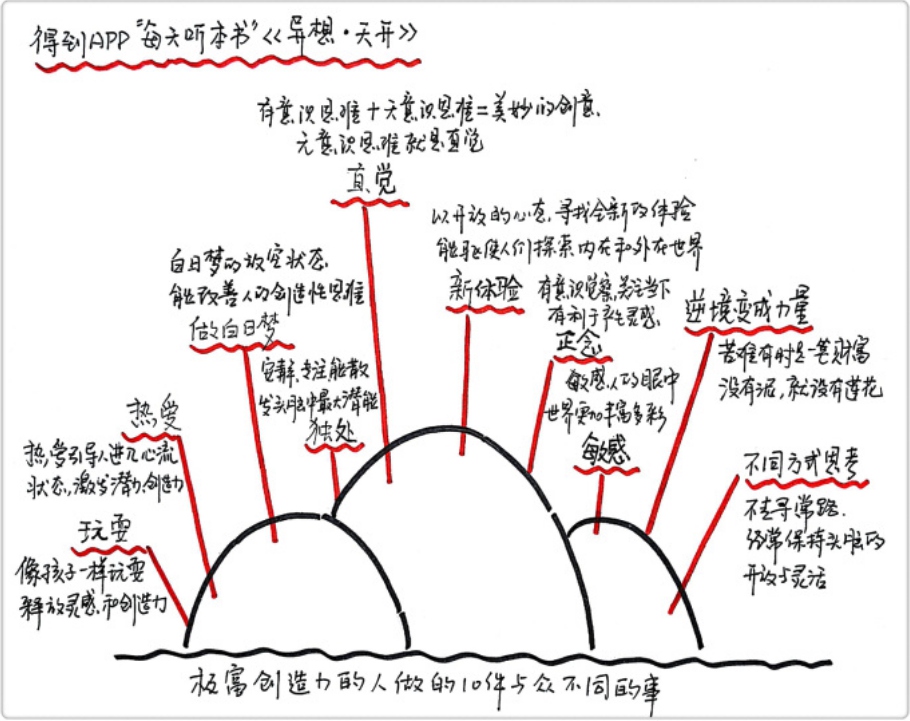 得到APP"每天听本书"《异想·天开》
有意识思维+无意识思维=美妙的创意
无意识思维就是直觉
直觉
以开放的心态,寻找全新的体验
能驱使人们探索内在和外在世界
新体验
白日梦的放空状态
能改善人的创造性思维
做白日梦
有意识觉察,关注当下
有利于产生灵感
正念
逆境变成力量
苦难有时是一笔财富
没有泥,就没有莲花
安静、专注能散
发头脑中最大潜能
独处
敏感人的眼中
世界更加丰富多彩
敏感
热爱
热爱引导人进入心流
状态,激发潜力,创造力
不同方式思考
不走寻常路.
经常保持头脑的
开放与灵活
玩耍
像孩子一样玩耍
释放灵感和创造力
极富创造力的人做的10件与众不同的事